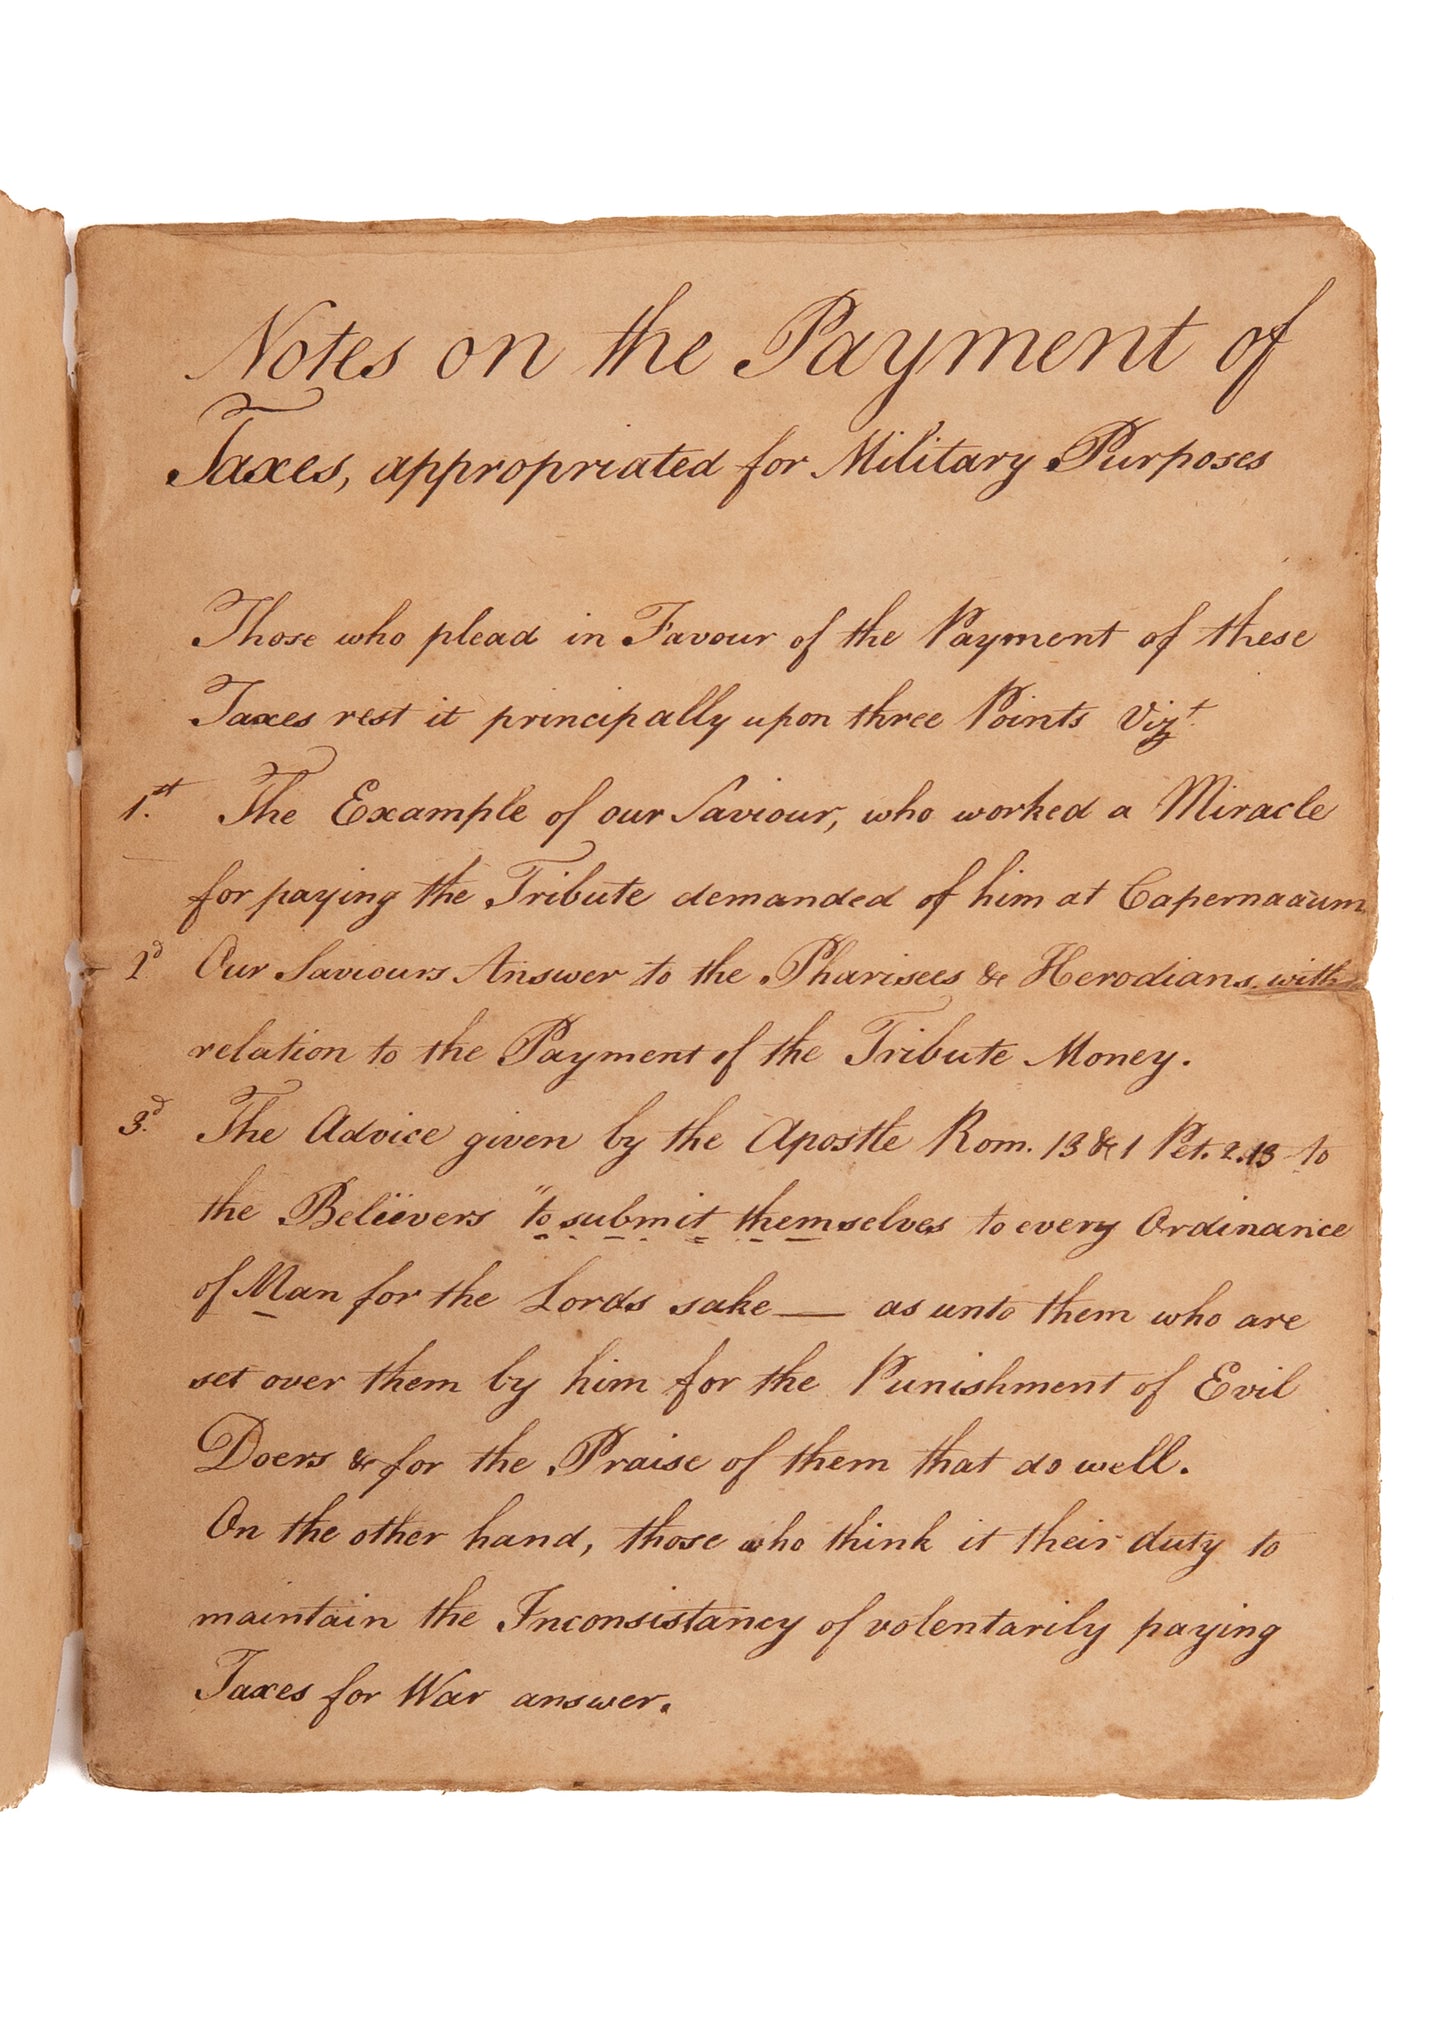 Notes on the Payment of
Taxes, appropriated for Military Purposes
Those who plead in Favour of the Payment of these
Taxes rest it principally upon three Points Vizt.
1.st The Example of our Saviour, who worked a Miracle
for paying the Tribute demanded of him at Capernaaum
2d Our Saviours Answer to the Pharisees & Herodians with
relation to the Payment of the Tribute Money.
3.d The Advice given by the Apostle Rom. 13 & 1 Pet. 2.13 to
the Belïevers "to submit themselves to every Ordinance
of Man for the Lords sake — as unto them who are
set over them by him for the Punishment of Evil
Doers & for the Praise of them that do well.
On the other hand, those who think it their duty to
maintain the Inconsistancy of volentarily paying
Taxes for War answer.